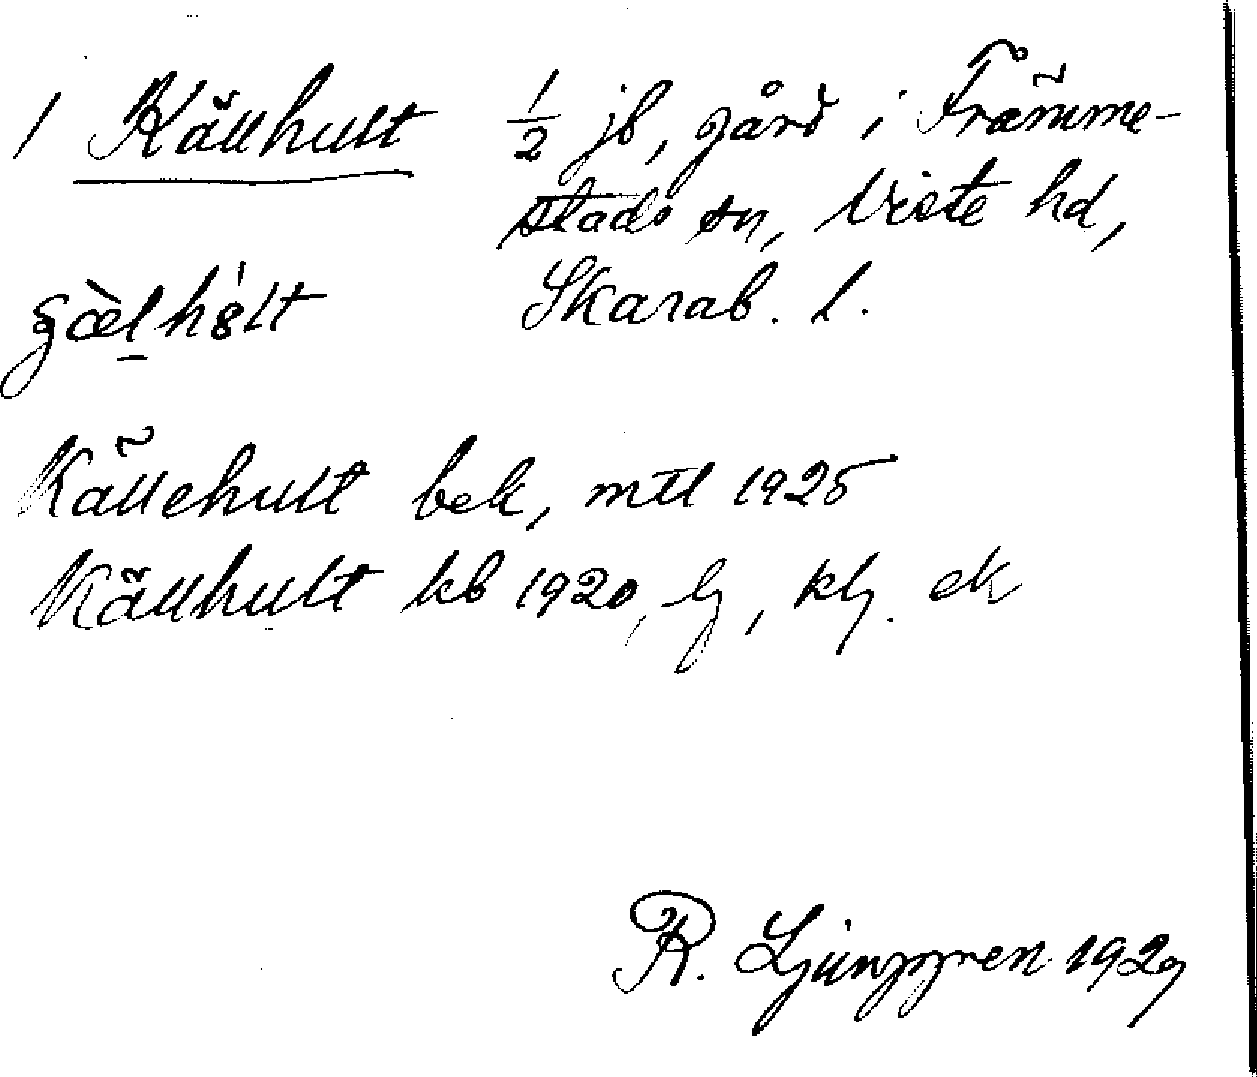 1 Källhult ½ jb, gård i Främme-
stads sn, Viste hd,
Skarab. l.
Källehult bek, mtl 1925
Källhult kb 1920, lj, klj. ek
R. Ljunggren 1929